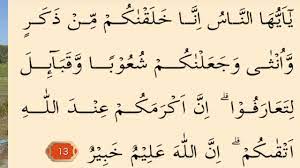 يٰٓاَيُّهَا النَّاسُ اِنَّا خَلَقْنٰكُمْ مِّنْ ذَكَرٍ
وَّاُنْثٰى وَجَعَلْنٰكُمْ شُعُوْبًا وَّقَبَاۤىِٕلَ
لِتَعَارَفُوْا ۗ اِنَّ اَكْرَمَكُمْ عِنْدَ اللّٰهِ
اَتْقٰىكُمْ ۗ اِنَّ اللّٰهَ عَلِيْمٌ خَبِيْرٌ 13